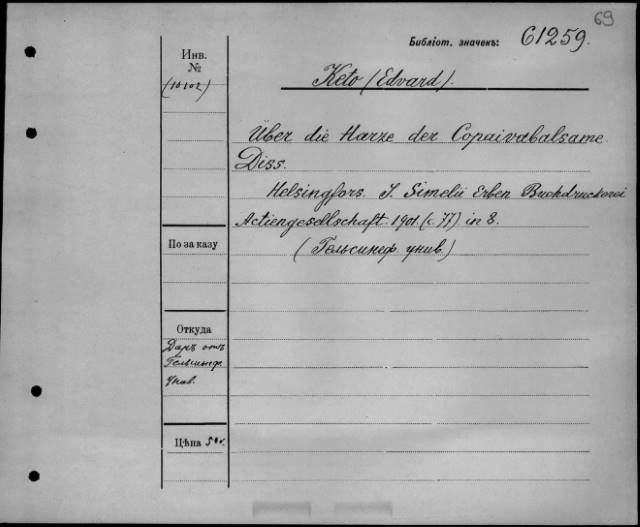 69
Библіот. значекъ: 61259.
Инв.
№
(10102)
Keto (Edvard).
Über die Harze der Copaivabalsame.
Diss.
Helsingfors. J. Simelii Erben Buchdruckerei
Actiengesellschaft. 1901. (c. 77) in 8.
(Гельсингф. унив.)
По заказу
Откуда
Даръ отъ
Гельсингф.
Унив.
Цѣна